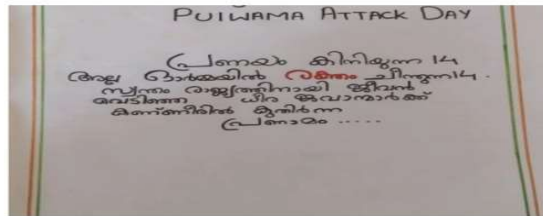 PULWAMA ATTACK DAY
പ്രണയം കിനിയുന്ന 14
അല്ല ഓർമ്മയിൽ രക്തം ചീന്തുന്ന 14.
സ്വന്തം രാജ്യത്തിനായി ജീവൻ
വെടിഞ്ഞ ധീര ജവാന്മാർക്ക്
കണ്ണീരിൽ കുതിർന്ന
പ്രണാമം .....